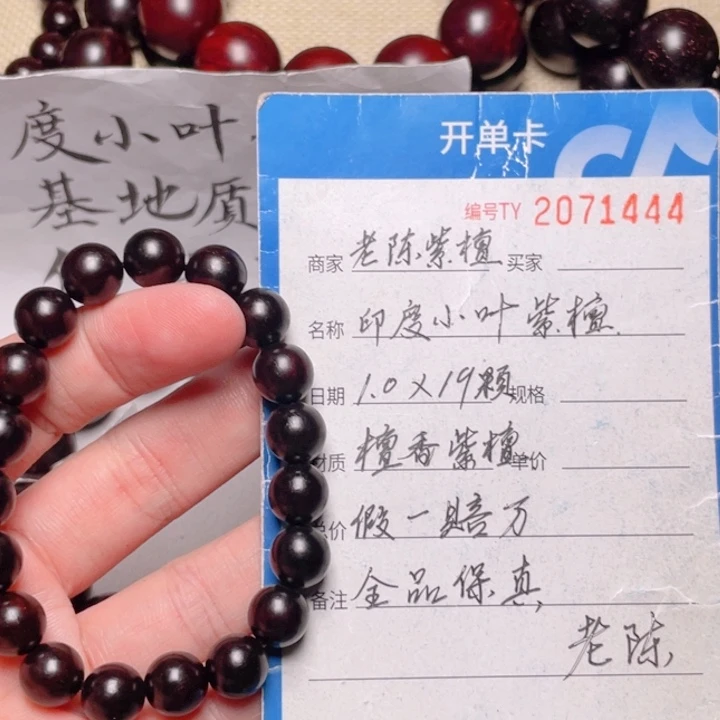 度小叶
基地质
开单卡
编号TY 2071444
商家 老陈紫檀 买家
名称 印度小叶紫檀
日期 1.0X19顆 规格
材质 檀香紫檀 单价
总价 假一赔万
备注 全品保真
老陈